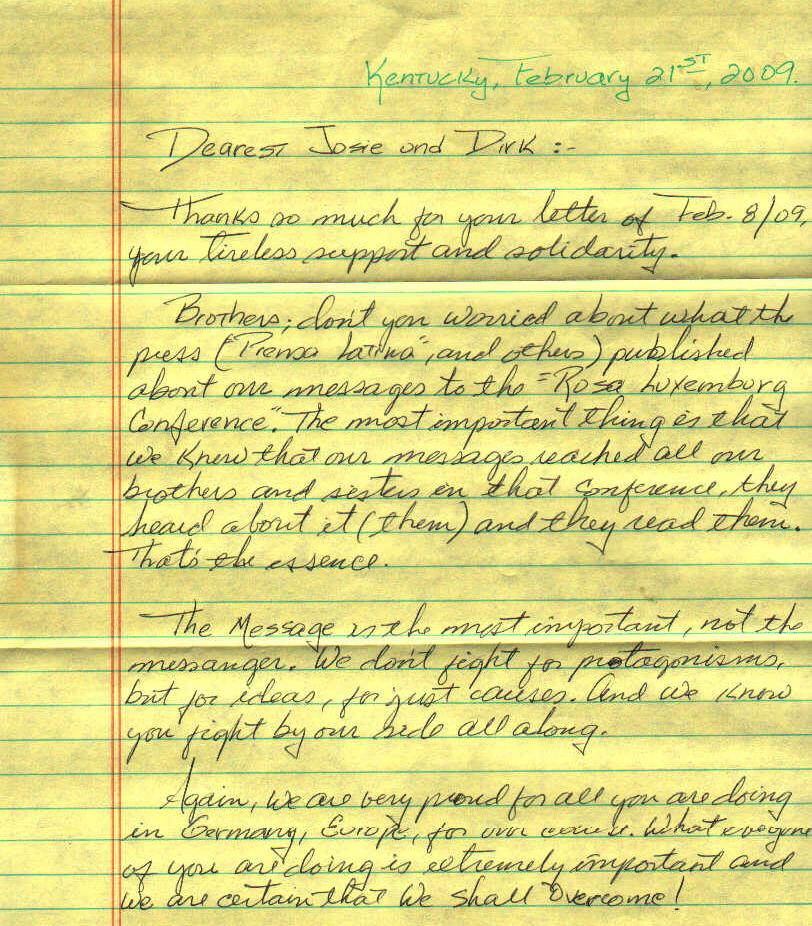 Kentucky, February 21ST, 2009.
Dearest Josie und Dirk :-
Thanks so much for your letter of Feb. 8/09,
your tireless support and solidarity.
Brothers; don't you worried about what the
press ("Prensa Latina", and others) published
about our messages to the "Rosa Luxemburg
Conference". The most important thing is that
we knew that our messages reached all our
brothers and sisters en that conference, they
heard about it (them) and they read them.
That's the essence.
The Message is the most important, not the
messanger. We don't fight for protagonisms,
but for ideas, for just causes. And we know
you fight by our side all along.
Again, we are very proud for all you are doing
in Germany, Europe, for our cause. What everyone
of you are doing is extremely important and
we are certain that We Shall Overcome!